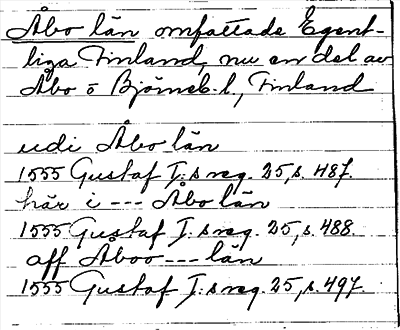 Åbo län omfattade Egent-
liga Finland, nu en del av
Åbo o Björneb. l, Finland
udi Åbo län
1555 Gustaf I:s reg. 25, s. 487.
här i --- Åbo län
1555 Gustaf I:s reg. 25, s. 488.
aff Åboo --- län
1555 Gustaf I:s reg. 25, s. 497.